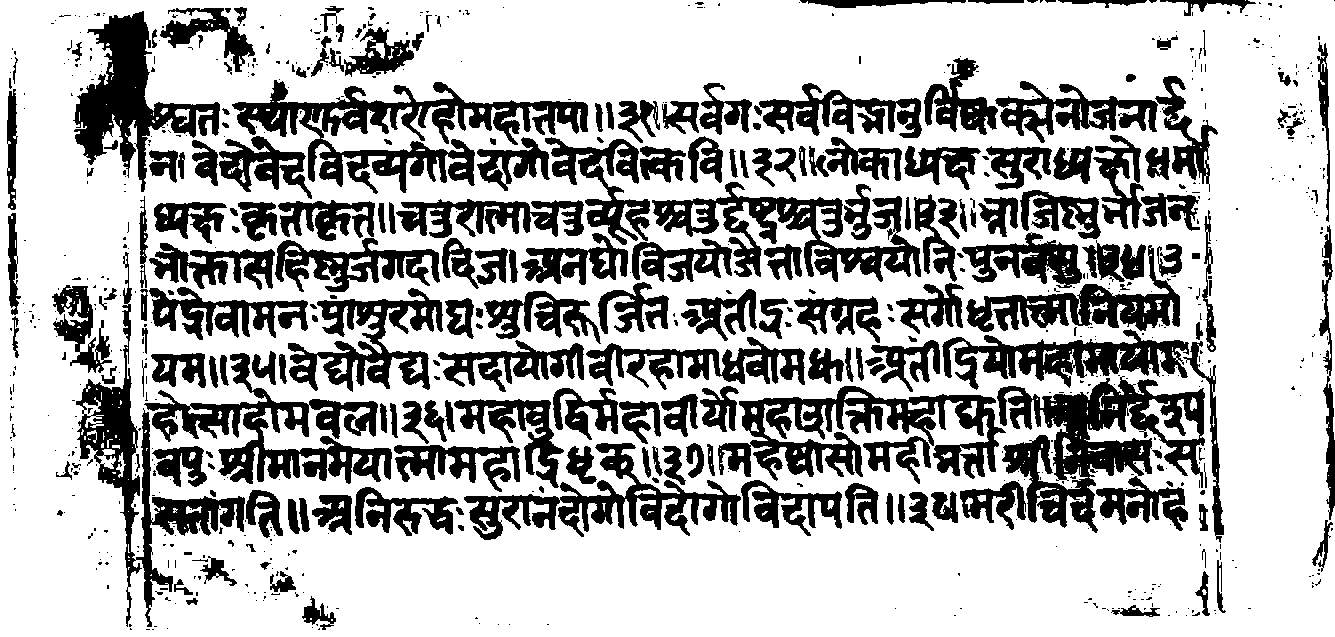 श्वतः स्थाणुर्वरारोहोमहातपा॥३१॥सर्वगःसर्वविद्भानुर्विष्वक्सेनोजनार्द्द
न। वेदोवेदविदव्यंगोवेदांगोवेदवित्कवि॥३२॥लोकाध्यक्षःसुराध्यक्षोधर्मा
ध्यक्षःकृताकृत॥चतुरात्माचतुर्व्यूहश्चतुर्द्दंष्ट्रश्चतुर्भुज॥३३॥भ्राजिष्णुर्भोजनं
भोक्तासहिष्णुर्जगदादिज।अनघोविजयोजेताविश्वयोनिःपुनर्वसु॥३४॥उ
पेंद्रोवामनःप्रांशुरमोघःशुचिरूर्जित अतींद्रःसंग्रहःसर्गोधृतात्मानियमो
यम॥३५।वेद्योवैद्यःसदायोगीवीरहामाधवोमधु॥अतींद्रियोमहामायोम
होत्साहोमबल॥३६।महाबुद्धिर्महावीर्योमहाशक्तिर्महाद्युति॥ र्निर्द्देश्य
वपुःश्रीमानमेयात्मामहाद्रिधृक्॥३७॥महेष्वासोमहीभर्त्ता श्रीनिवासःस
सतांगति॥अनिरुद्धःसुरानंदोगोविंदोगोविदांपति॥३८।मरीचिर्दमनोहं